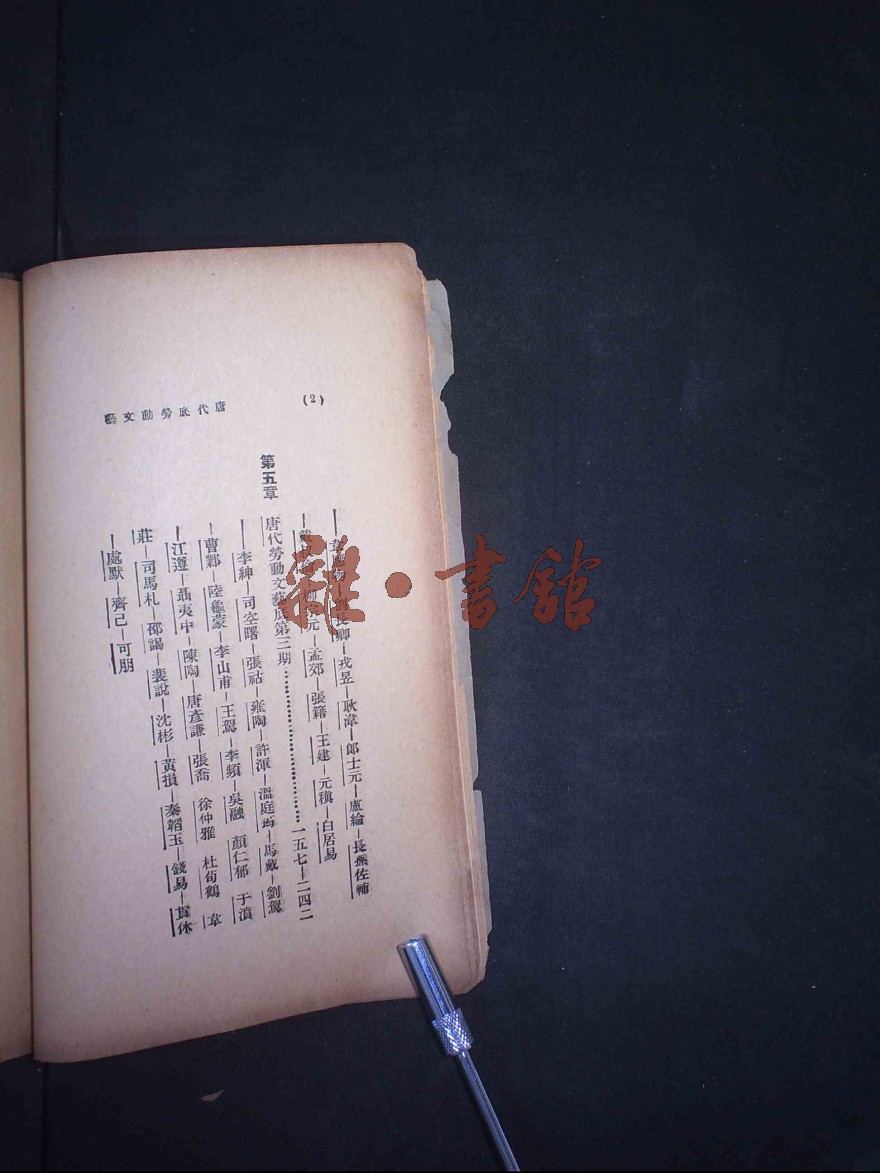 (2)
唐代底勞動文藝
劉長卿—戎昱—耿湋—郎士元—盧綸—長孫佐輔
元—孟郊—張籍—王建—元稹—白居易
第五章 唐代勞動文藝底第三期…………………………一五七—二四二
—李紳—司空曙—張祜—雍陶—許渾—溫庭筠—馬戴—劉駕
—曹鄴—陸龜蒙—李山甫—王駕—李頻—吳融 顏仁郁 于濆
—江遵—聶夷中—陳陶—唐彥謙—張喬 徐仲雅 杜荀鶴 韋
莊—司馬札—邵謁—裴說—沈彬—黃損—秦韜玉—錢易—貫休
—處默 齊己—可朋
雜·書館